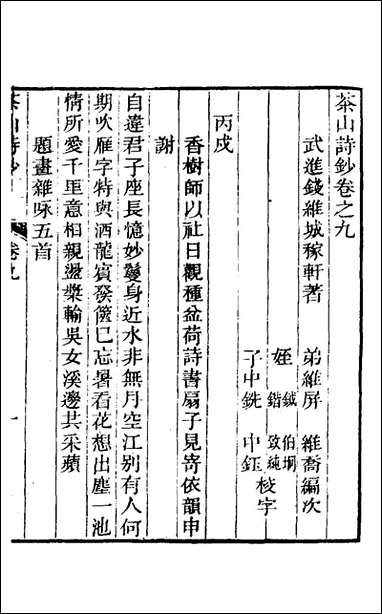 茶山詩鈔卷之九
武進錢維城稼軒著　弟維屏　維喬編次
姪　鉞　伯坰
鍇　致純
子中銑　中鈺　校字
丙戌
香樹師以社日觀種盆荷詩書扇子見寄依韻申
謝
自違君子座長憶妙鬘身近水非無月空江别有人何
期吹雁字特與酒龍賓褦襶已忘暑看花想出塵一池
情所愛千里意相親盪槳輸吳女溪邊共采蘋
題畫雜咏五首
茶山詩鈔　卷九　一